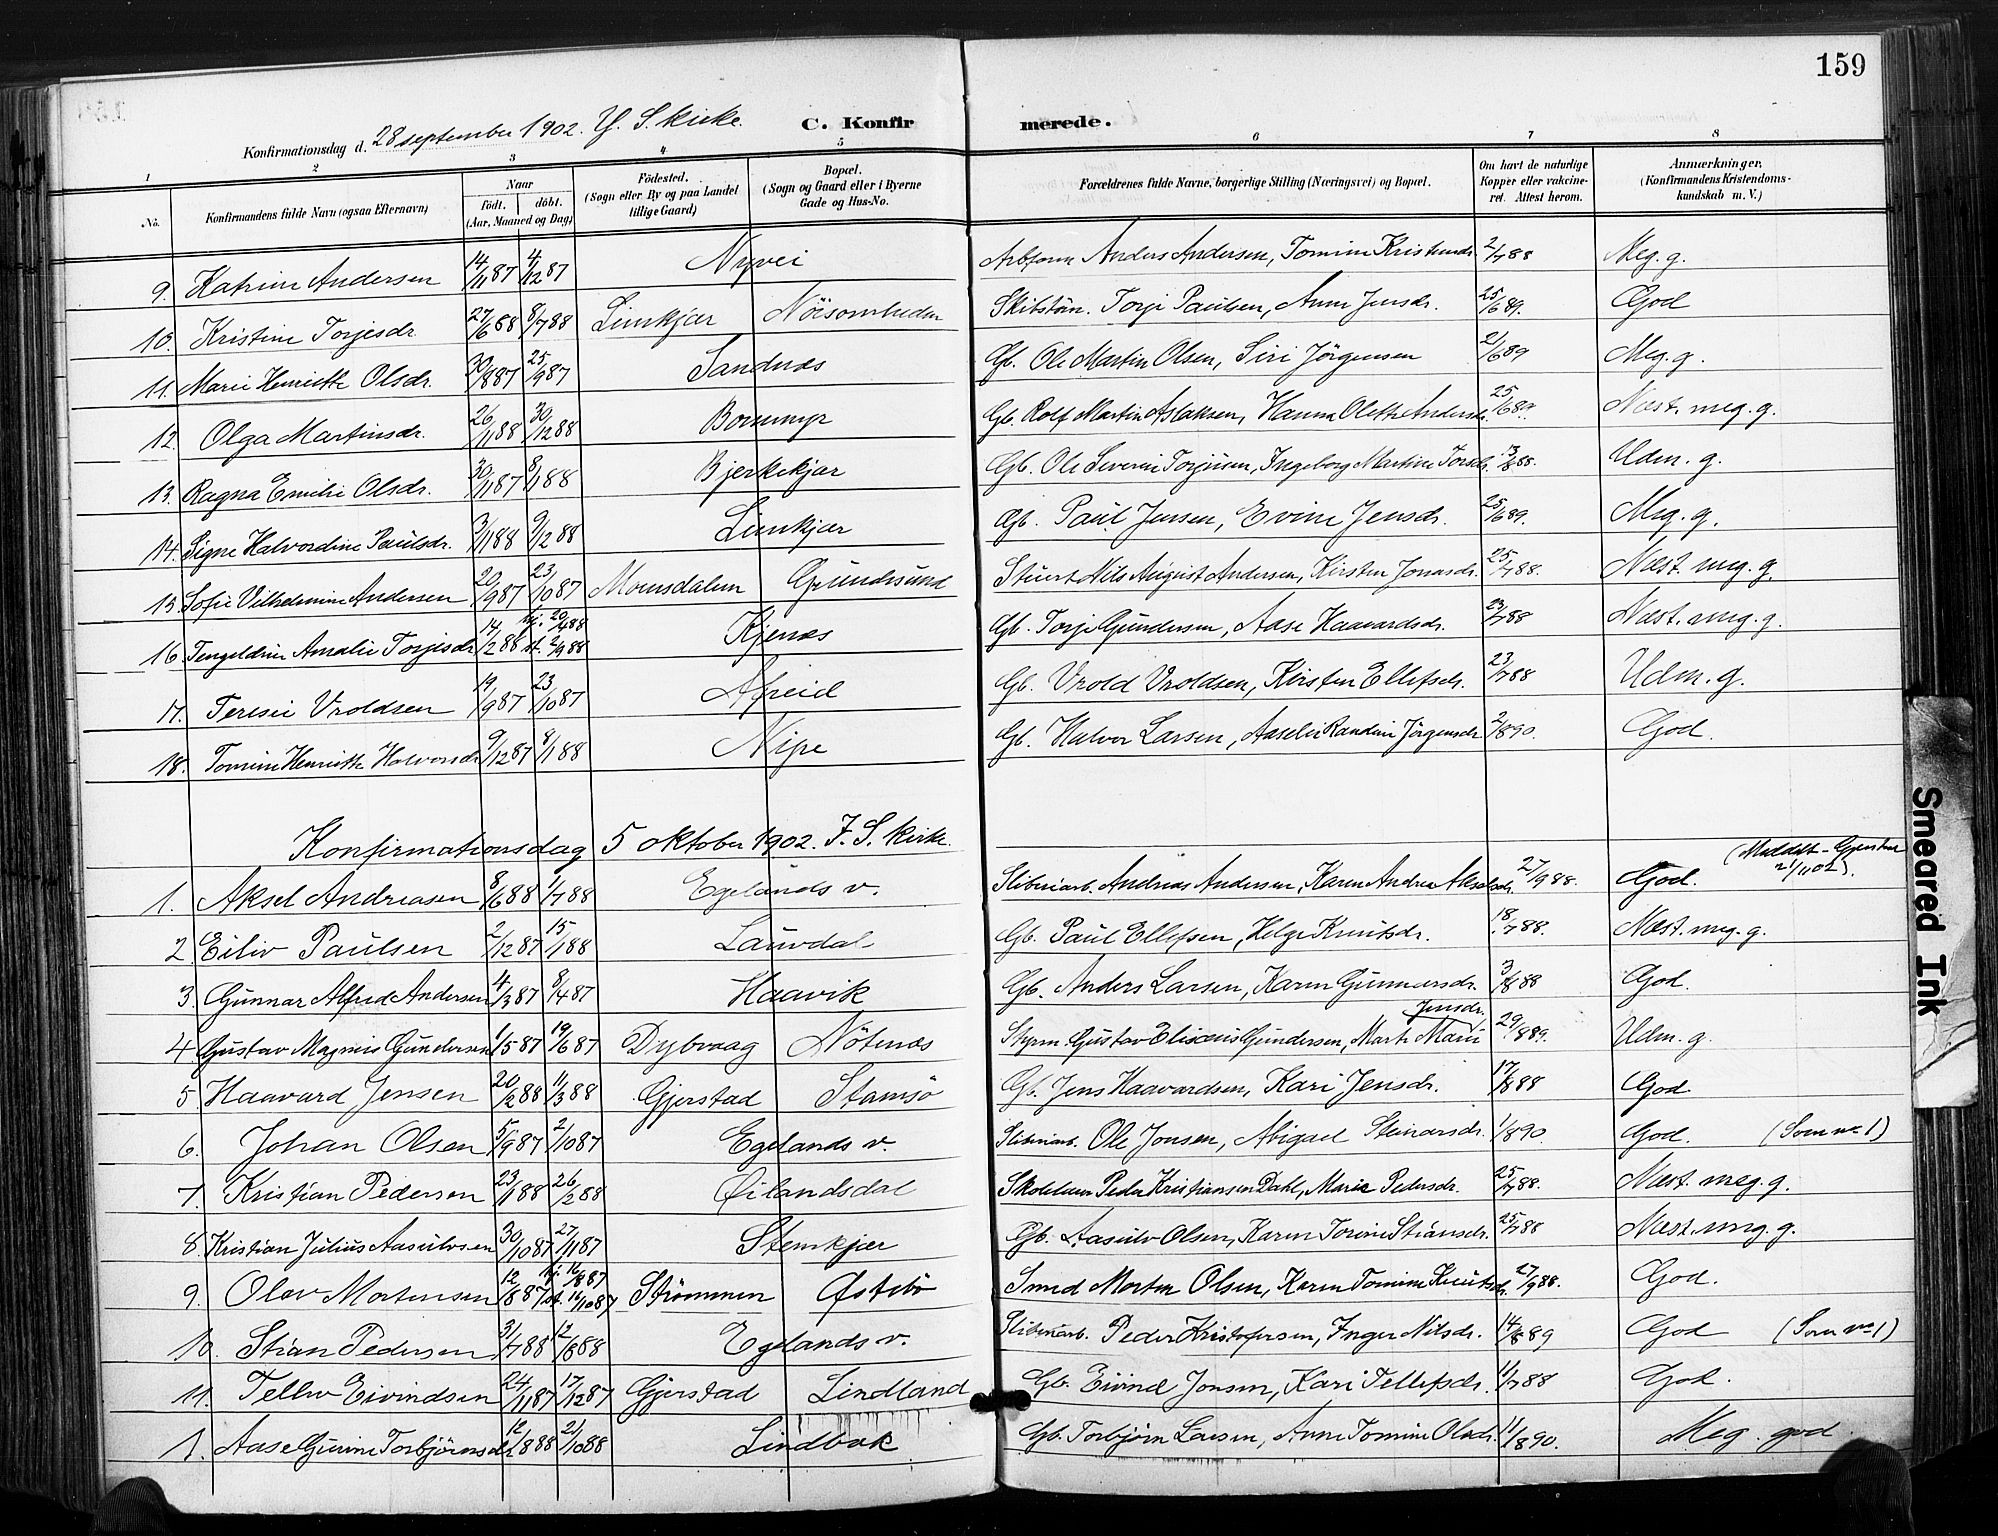 159
Konfirmationsdag d. 28 september 1902. Y. S. kirke. C. Konfirmerede.
1 2 3 4 5 6 7 8
No. Konfirmandens fulde Navn (ogsaa Efternavn) Naar Födt. döbt. (Aar, Maaned og Dag) Födested. (Sogn eller By og paa Landet tillige Gaard) Bopæl. (Sogn og Gaard eller i Byerne Gade og Hus-No. Forældrenes fulde Navne, borgerlige Stilling (Næringsvei) og Bopæl. Om havt de naturlige Kopper eller vakcineret. Attest herom. Anmærkninger, (Konfirmandens Kristendomskundskab m. V.)
9. Katrine Andersen 14/11 87 4/12 87 Nyvei Arbform Anders Andersen, Tomine Kristensdr. 2/7 88 Meg. g.
10. Kristine Torjesdr. 27/6 88 8/7 88 Limkjær Nöisomheden Skibstöm. Torje Paulsen, Anne Jensdr. 25/6 89. God
11. Marie Henriette Olsdr. 30/8 87 25/9 87 Sandnæs Gb. Ole Martin Olsen, Siri Jörgensen 21/6 89 Meg. g.
12. Olga Martinsdr. 26/11 88 30/12 88 Bommyr Gb. Rolf Martin Aslaksen, Hanna Olette Andersdr. 25/6 89. Næst. meg. g.
13. Ragna Emilie Olsdr. 30/11 87 8/1 88 Bjerkekjær Gb. Ole Severin Torjusen, Ingeborg Martine Torsdr. 13/8 88. Udm. g.
14. Signe Halvordine Paulsdr. 3/11 88 9/12 88 Limkjær Gb. Paul Jensen, Evine Jensdr. 25/6 89. Meg. g.
15. Sofie Vilhelmine Andersen 20/9 87 23/10 87 Moensdalen Grundesund Stuert Nils August Andersen, Kirsten Jonasdr. 25/7 88. Næst. meg. g.
16. Tengeldine Amalie Torjesdr. 14/2 88 hj. 20/4 88 st. 2/9 88 Kjenæs Gb. Torje Gundersen, Aase Haavardsdr. 23/7 88 Næst. meg. g.
17. Teresie Vroldsen 19/9 87 23/10 87 Afreid Gb. Vrold Vroldsen, Kirsten Ellefsdr. 23/7 88 Udm. g.
18. Tomine Henriette Halvorsdr. 9/12 87 8/1 88 Nipe Gb. Halvor Larsen, Aaselie Randine Jörgensdr. 2/8 90. God.
Konfirmationsdag 5 oktober 1902. F. S. kirke.
1. Aksel Andreasen 8/6 88 1/7 88 Egelands v. Sliberiarb. Andreas Andersen, Karen Andrea Akselsdr. 27/9 88. God. (Meddelt Gjerstad 21/11 02).
2. Eiliv Paulsen 2/12 87 15/1 88 Lauvdal Gb. Paul Ellefsen, Helge Knutsdr. 18/7 88. Næst. meg. g.
3. Gunnar Alfred Andersen 4/3 87 8/4 87 Haavik Gb. Anders Larsen, Karen Gunnarsdr. 3/8 88 God.
4. Gustav Magnus Gundersen 1/5 87 19/6 87 Dybvaag Nötenæs Styrm. Gustav Eliseus Gundersen, Marte Marie Jensdr. 29/8 89. Udm. g.
5. Haavard Jensen 20/2 88 11/3 88 Gjerstad Stamsö Gb. Jens Haavardsen, Kari Jensdr. 17/8 88 God
6. Johan Olsen 5/9 87 2/10 87 Egelands v. Sliberiarb. Ole Jonsen, Abigael Steinarsdr. 1/8 90. God. (Som no 1)
7. Kristian Pedersen 23/1 88 26/2 88 Øilandsdal Skolelærer Peder Kristiansen Dahl, Marie Pedersdr. 25/7 88. Næst. meg. g.
8. Kristian Julius Aasulvsen 30/10 87 27/11 87 Stenkjær Gb. Aasulv Olsen, Karen Tomine Stiansdr. 25/7 88 Næst. meg. g.
9. Olav Mortensen 12/8 87 hj. 16/8 87 st. 16/10 87 Strömmen Østebö Smed Morten Olsen, Karen Tomine Knutsdr. 27/9 88. God.
10. Stian Pedersen 31/7 88 12/8 88 Egelands v. Sliberiarb. Peder Kristofersen, Inger Nilsdr. 14/8 89 God (Som no 1)
11. Tellev Eivindsen 24/11 87 17/12 87 Gjerstad Lindland Gb. Eivind Jonsen, Kari Tellefsdr. 1/7 88 God.
1. Aase Gurine Torbjörnsdr. 12/8 88 21/10 88 Lindbak Gb. Torbjörn Larsen, Anne Tomine Olsdr. 11/8 90. Meg. god.
Smeared Ink